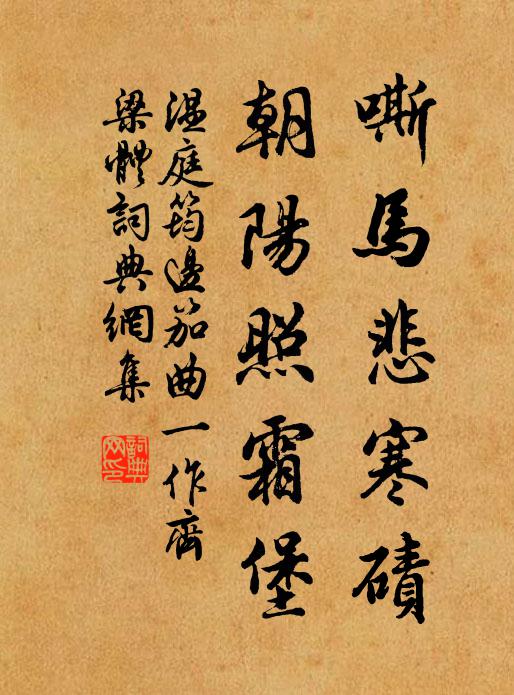 嘶馬悲寒磧
朝陽照霜堡
溫庭筠邊笳曲一作齊
梁體詞典網集
詞典網印